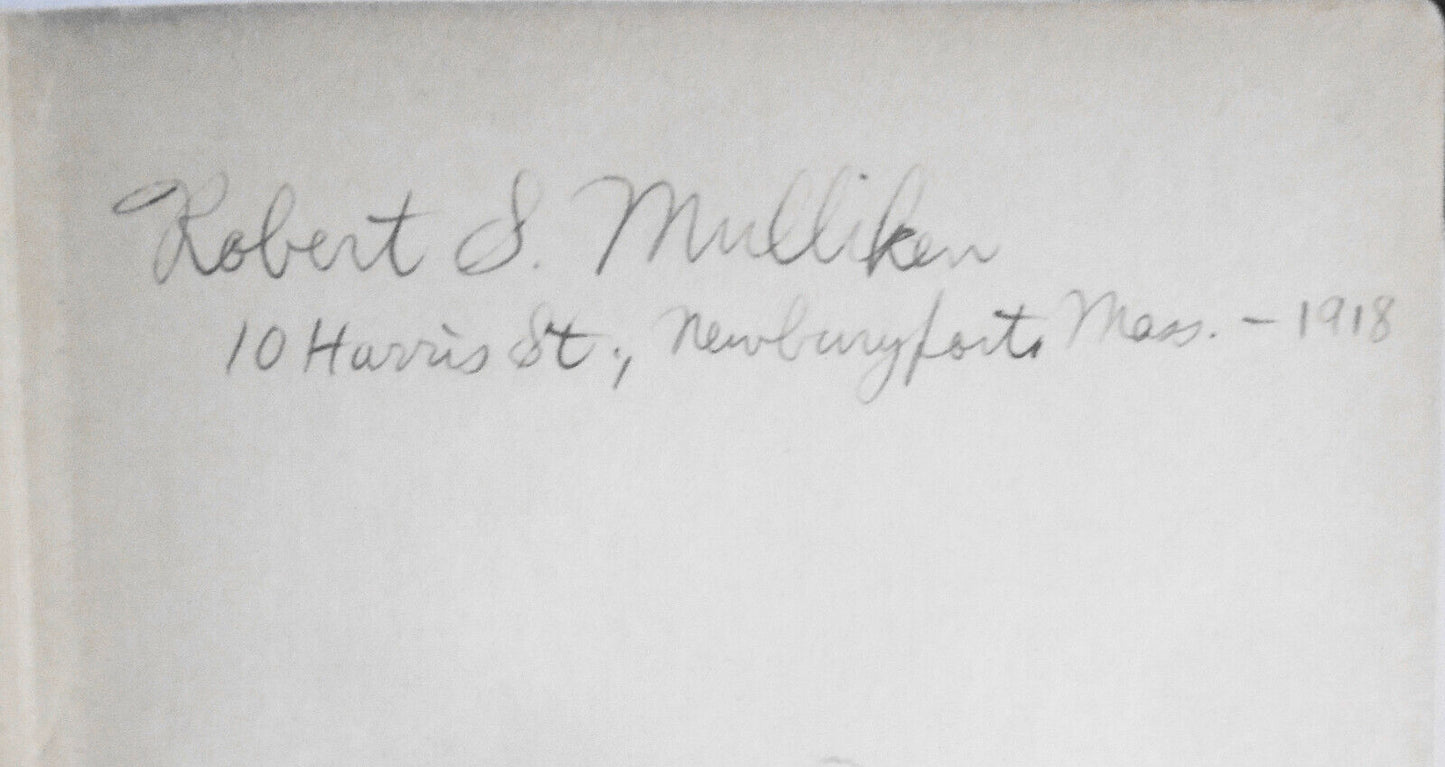 Robert S. Mulliken
10 Harris St., Newburyport, Mass. - 1918